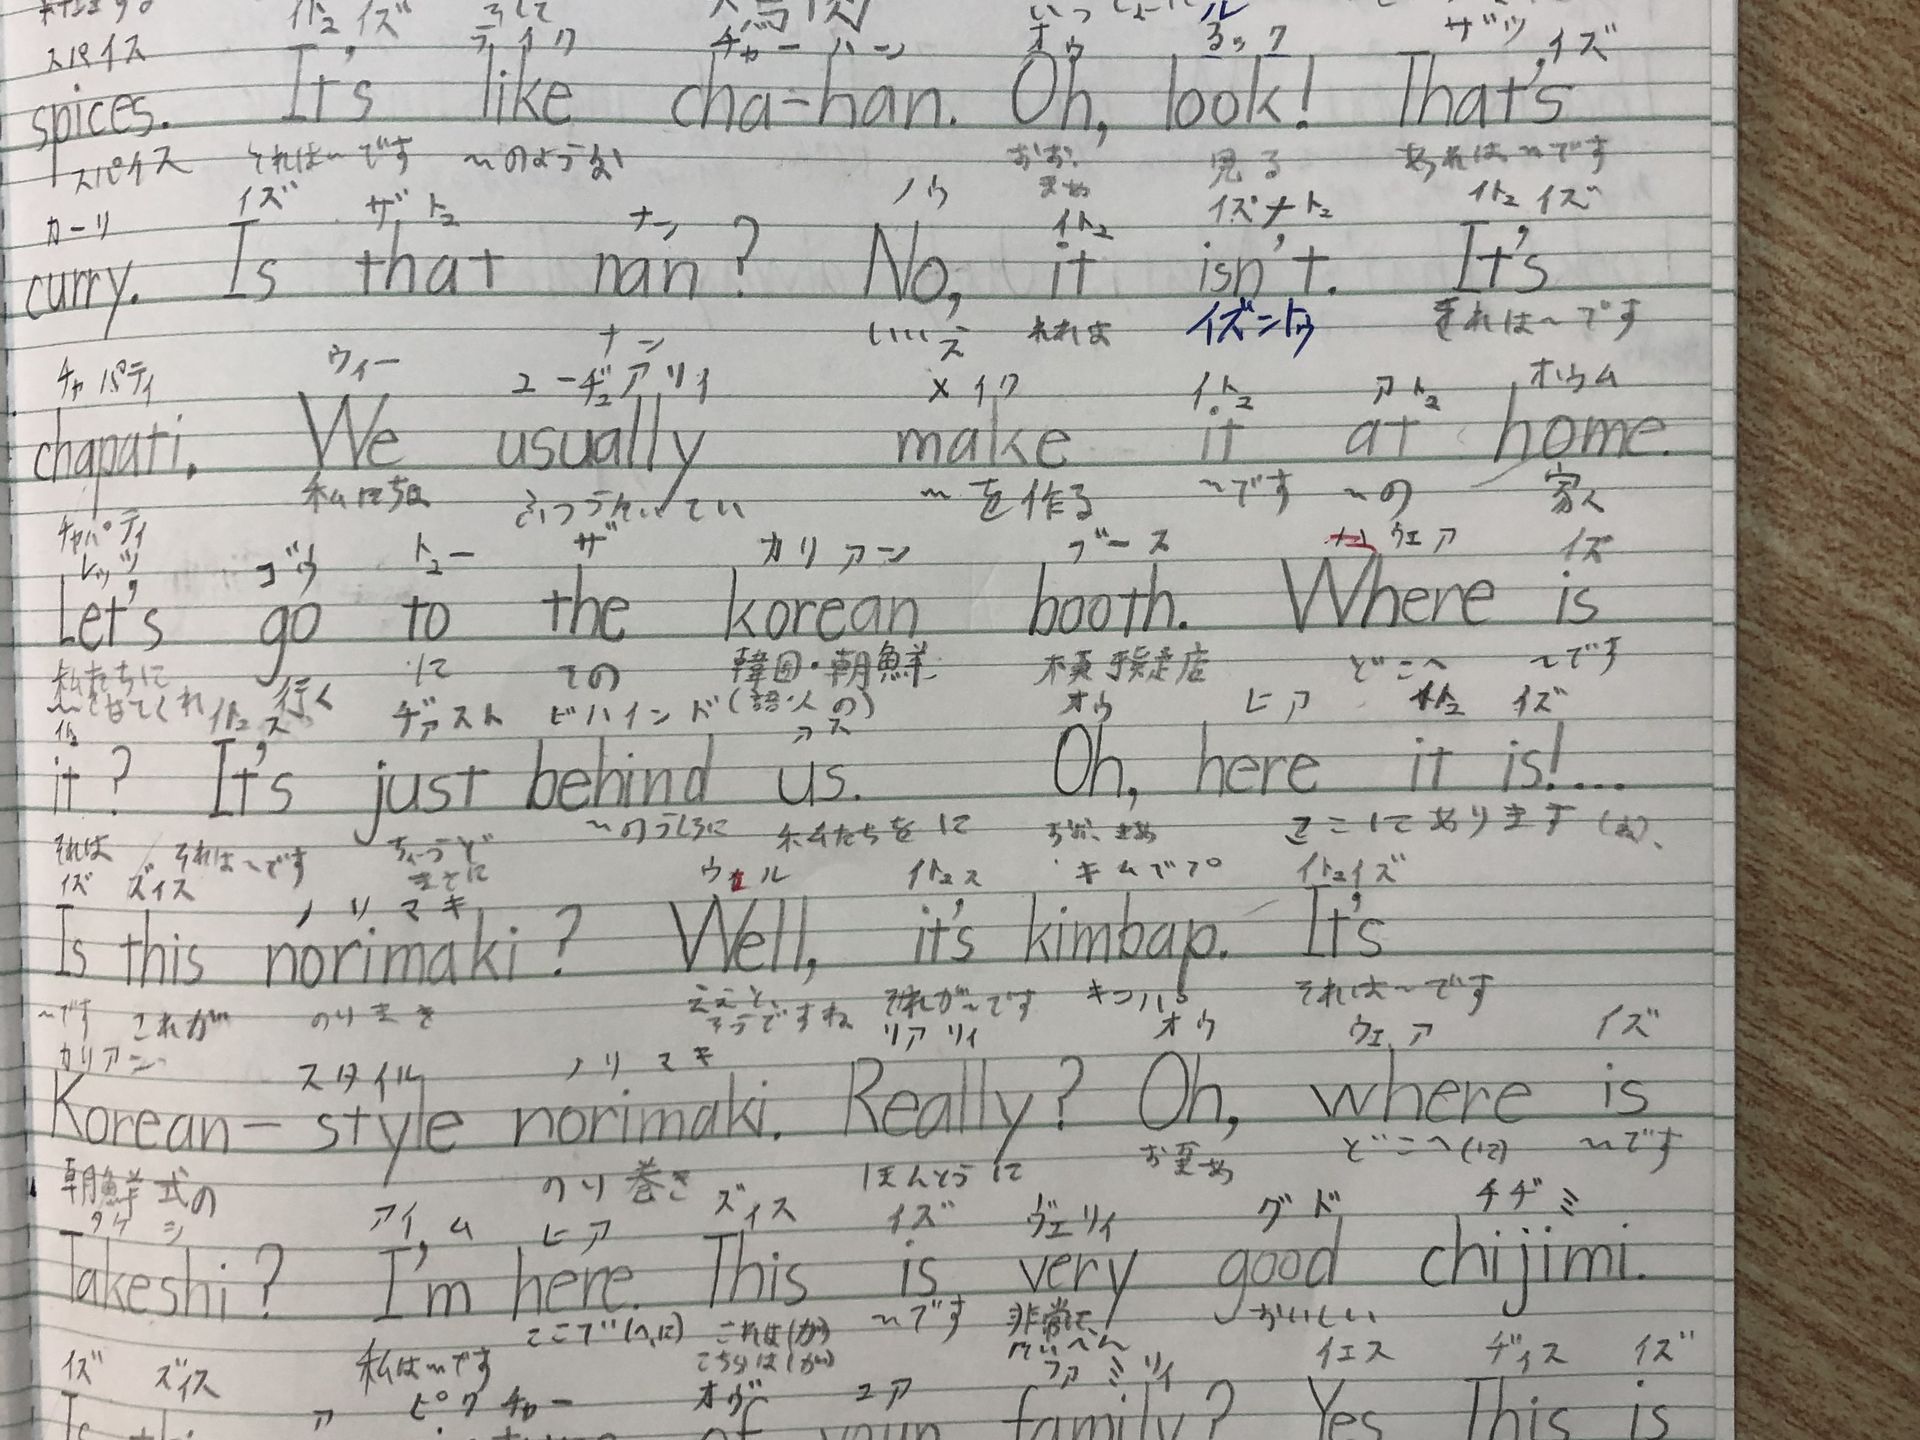 スパイス イズ ライク チャーハン オウ ルック ザッツ イズ
spices. It's like cha-han. Oh, look! That's
スパイス それは〜です 〜のような おお、まあ 見る あれは〜です
カーリ イズ ザト ナン ノウ イト イズナト イト イズ
curry. Is that nan? No, it isn't. It's
いいえ それは イズントゥ それは〜です
チャパティ ウィー ナン ユージュアリィ メイク イト アト オウム
chapati. We usually make it at home.
チャパティ 私たちは ふつう 〜を作る 〜です 〜の 家
レッツ ゴウ トゥー ザ カリアン ブース ウェア イズ
Let's go to the korean booth. Where is
私たちに 行く に その 韓国・朝鮮(語・人の) 模擬店 どこへ 〜です
イト イトス ヂァスト ビハインド アス オウ ヒア イト イズ
it? It's just behind us. Oh, here it is!...
それは それは〜です ちょうど まさに 〜のうしろに 私たちを に おお、まあ ここにあります
イズ ズィス ノリマキ ウェル イトス キムバプ イトイズ
Is this norimaki? Well, it's kimbap. It's
〜です これが のりまき ええと、そうですね それが〜です キンパ それは〜です
カリアン スタイル ノリマキ リアリィ オウ ウェア イズ
Korean-style norimaki. Really? Oh, where is
朝鮮式の のり巻き ほんとうに おお まあ どこへ(に) 〜です
タケシ アイム ヒア ズィス イズ ヴェリィ グド チヂミ
Takeshi? I'm here. This is very good chijimi.
私は〜です ここで(へ,に) これは(が) こちらは(が) 〜です 非常に、たいへん おいしい
イズ ズィス ア ピクチャー オヴ ユア ファミリィ イエス ヂィス イズ
Is this of your family? Yes This is